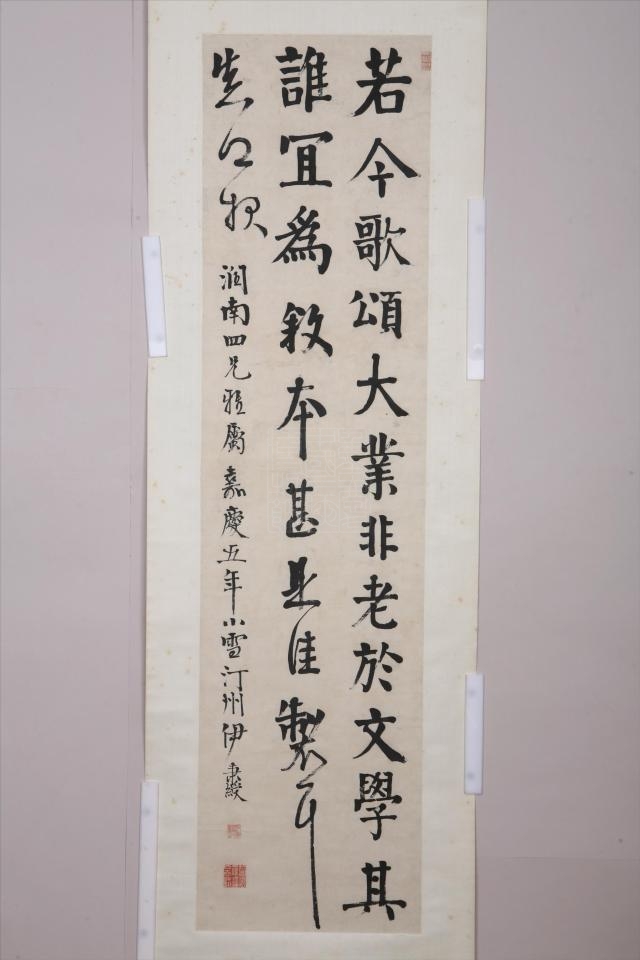 若今歌頌大業非老於文學其
誰冝爲敘本甚是佳製耳
潤南四兄雅屬 嘉慶五年小雪汀州伊秉綬